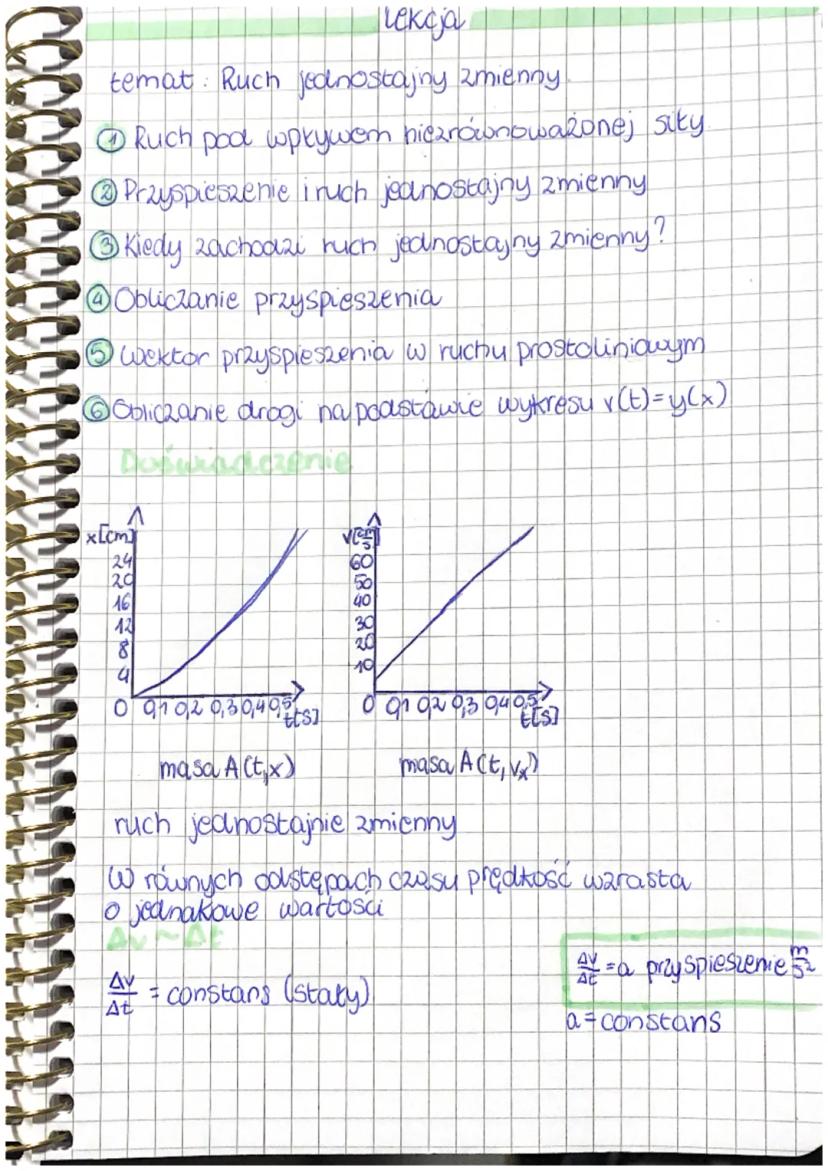 Lekcja
temat: Ruch jednostajny zmienny.
① Ruch pod wpływem niezrównoważonej siły
② Przyspieszenie i ruch jednostajny zmienny
③ Kiedy zachodzi ruch jednostajny zmienny?
④ Obliczanie przyspieszenia
⑤ Wektor przyspieszenia w ruchu prostoliniowym
⑥ Obliczanie drogi na podstawie wykresu v(t)=y(x)
Doświadczenie
x[cm]
24
20
16
12
8
4
0 0,1 0,2 0,3 0,4 0,5
t[s]
masa A(t,x)
v[cm/s]
60
50
40
30
20
10
0 0,1 0,2 0,3 0,4 0,5
t[s]
masa A(t,vₓ)
ruch jednostajnie zmienny
W równych odstępach czasu prędkość wzrasta
o jednakowe wartości
Δv ~ Δt
Δv/Δt = constans (stały)
Δv/Δt = a przyspieszenie m/s²
a = constans